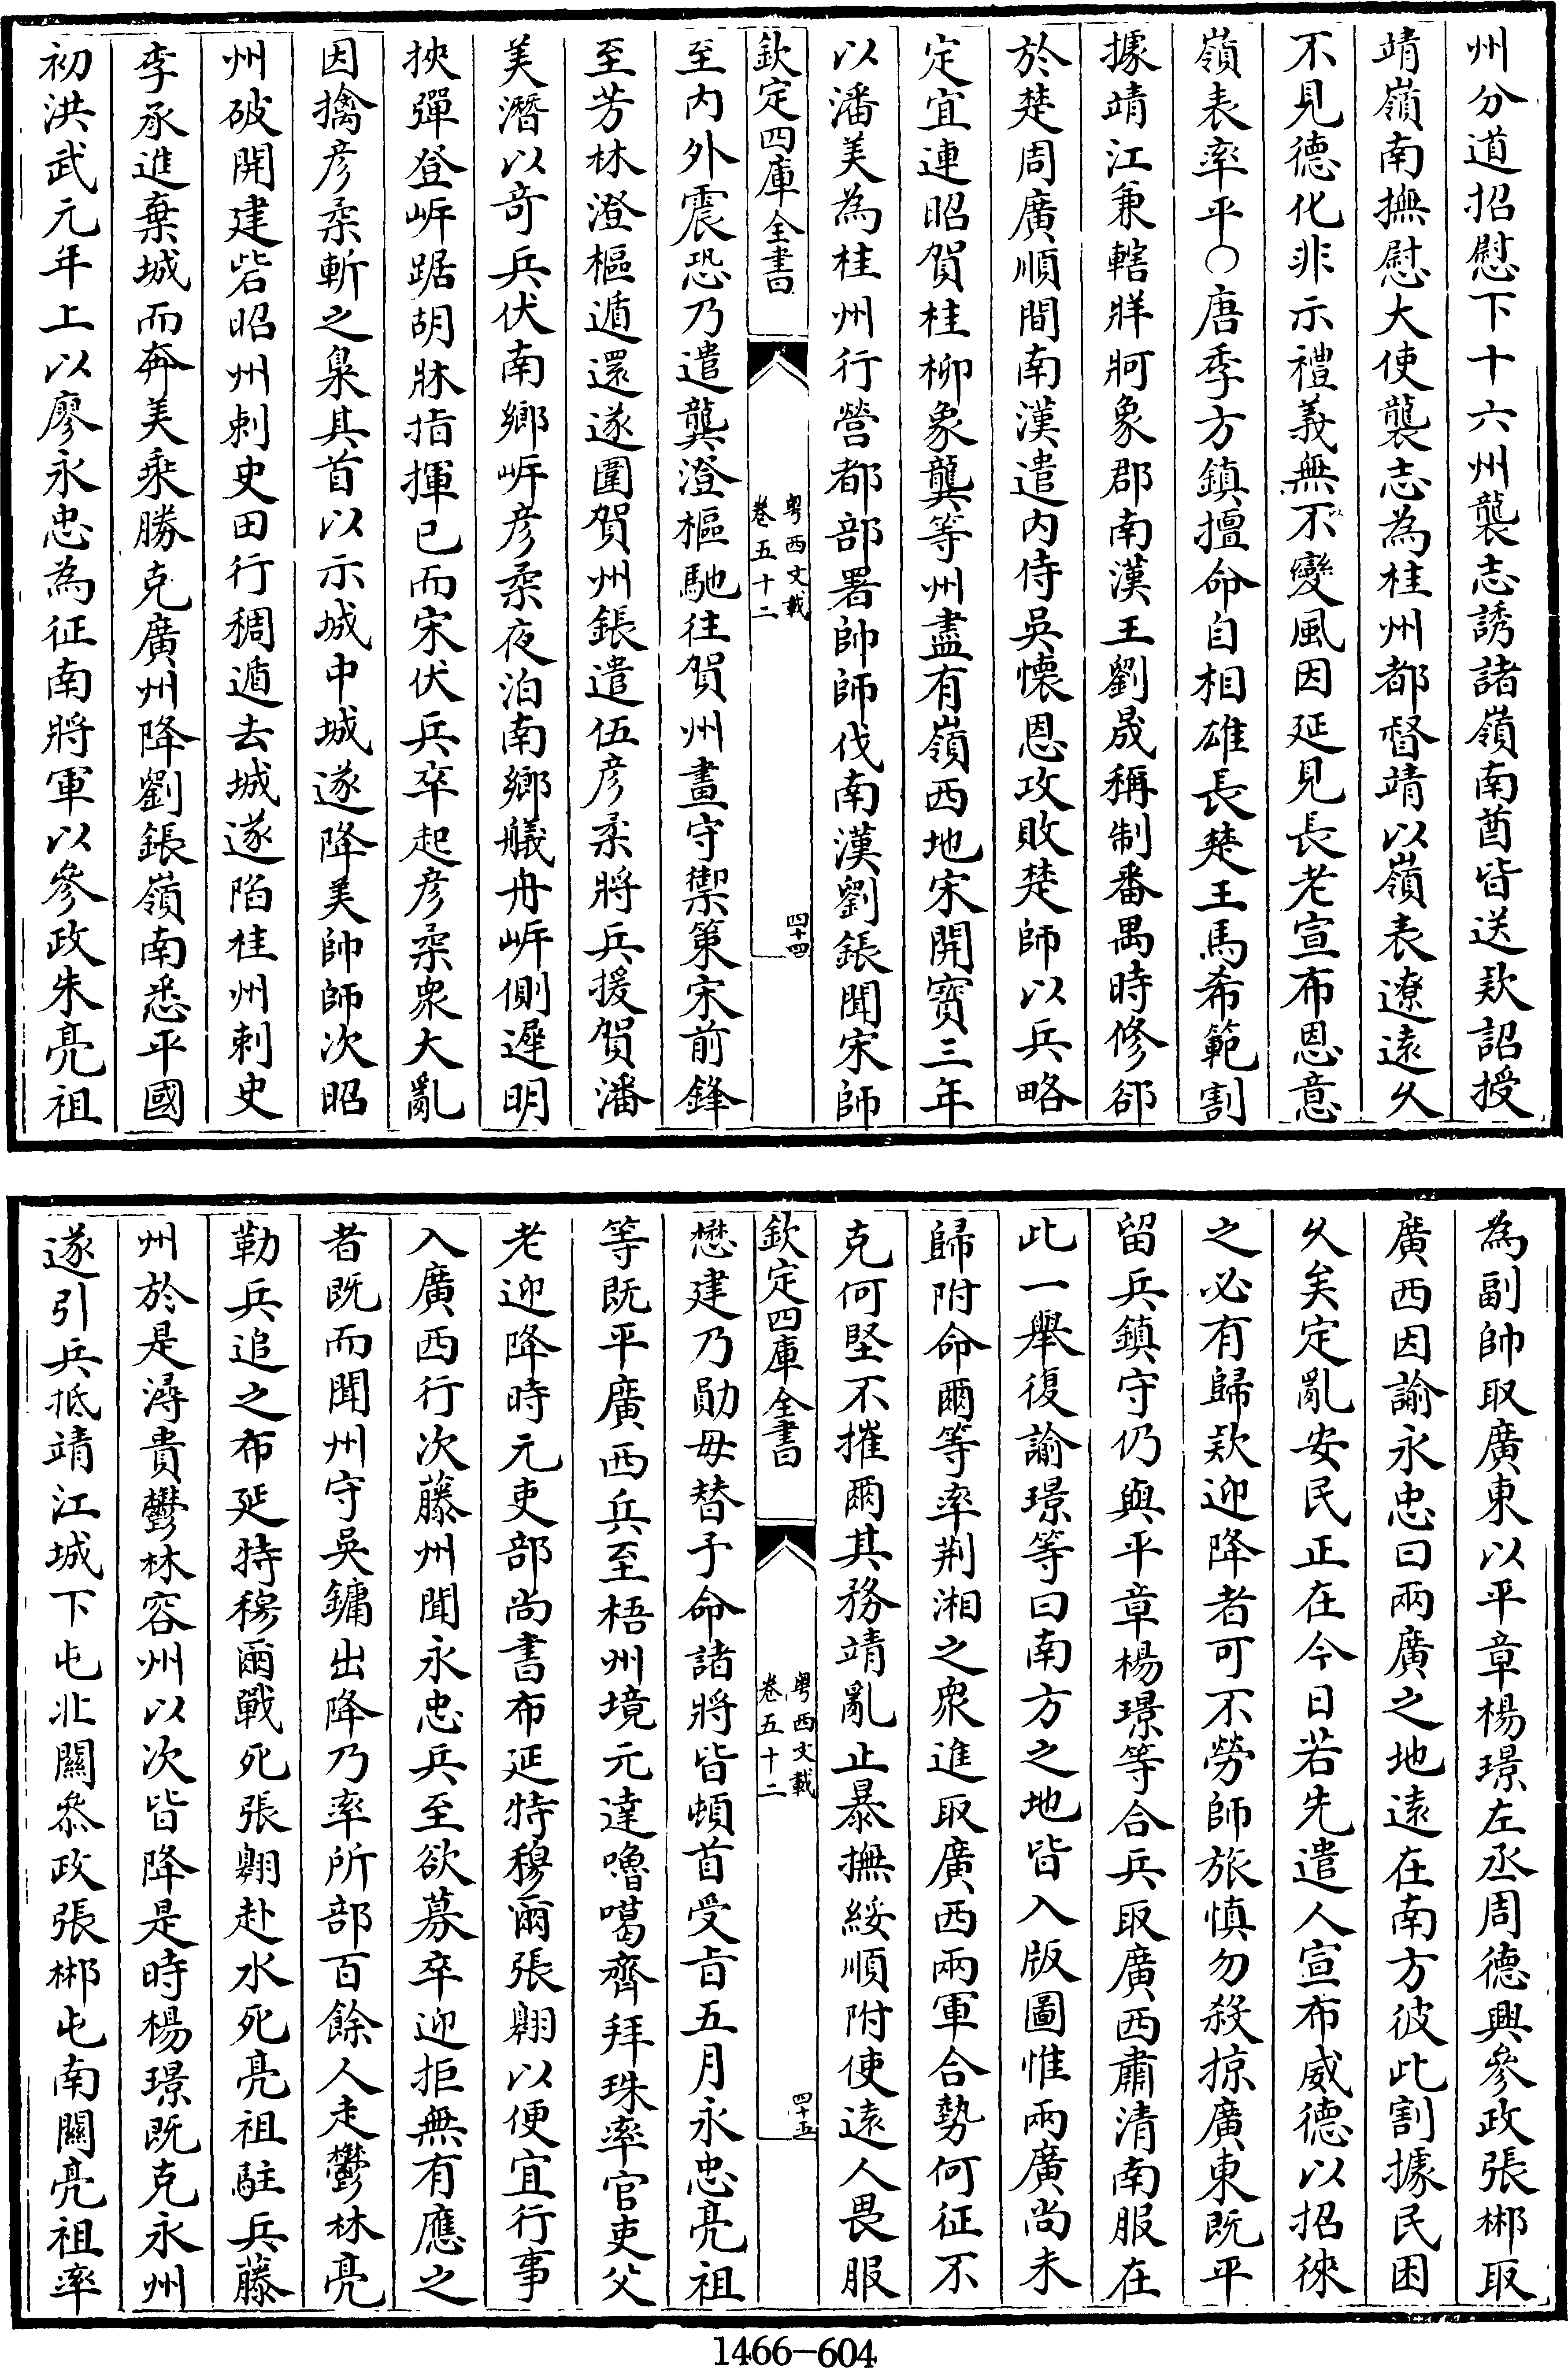 州分道招慰下十六州襲志誘諸嶺南酋皆送款詔授
靖嶺南撫慰大使襲志為桂州都督靖以嶺表遼遠久
不見德化非示禮義無以變風因延見長老宣布恩意
嶺表率平○唐季方鎮擅命自相雄長楚王馬希範割
據靖江兼轄牂牁象郡南漢王劉晟稱制番禺時修郤
於楚周廣順間南漢遣内侍吳懷恩攻敗楚師以兵略
定宜連昭賀桂柳象龔等州盡有嶺西地宋開寳三年
以潘美為桂州行營都部署帥師伐南漢劉鋹聞宋師
欽定四庫全書
粤西文載
卷五十二
四十四
至内外震恐乃遣龔澄樞馳往賀州畫守禦策宋前鋒
至芳林澄樞遁還遂圍賀州鋹遣伍彦柔將兵援賀潘
美潛以奇兵伏南鄉岸彦柔夜泊南鄉艤舟岸側遲明
挾彈登岸踞胡牀指揮已而宋伏兵卒起彦柔衆大亂
因擒彦柔斬之梟其首以示城中城遂降美帥師次昭
州破開建砦昭州刺史田行稠遁去城遂陷桂州刺史
李承進棄城而奔美乘勝克廣州降劉鋹嶺南悉平國
初洪武元年上以廖永忠為征南將軍以參政朱亮祖
為副帥取廣東以平章楊璟左丞周德興參政張郴取
廣西因諭永忠曰兩廣之地遠在南方彼此割據民困
久矣定亂安民正在今日若先遣人宣布威德以招徠
之必有歸款迎降者可不勞師旅慎勿殺掠廣東既平
留兵鎮守仍與平章楊璟等合兵取廣西肅清南服在
此一舉復諭璟等曰南方之地皆入版圖惟兩廣尚未
歸附命爾等率荆湘之衆進取廣西兩軍合勢何征不
克何堅不摧爾其務靖亂止暴撫綏順附使遠人畏服
欽定四庫全書
粤西文載
卷五十二
四十五
懋建乃勛毋替予命諸將皆頓首受旨五月永忠亮祖
等既平廣西兵至梧州境元達嚕噶齊拜珠率官吏父
老迎降時元吏部尚書布延特穆爾張翺以便宜行事
入廣西行次藤州聞永忠兵至欲募卒迎拒無有應之
者既而聞州守吳鏞出降乃率所部百餘人走鬱林亮
勒兵追之布延特穆爾戰死張翺赴水死亮祖駐兵藤
州於是潯貴鬱林容州以次皆降是時楊璟既克永州
遂引兵抵靖江城下屯北關叅政張郴屯南關亮祖率
1466-604